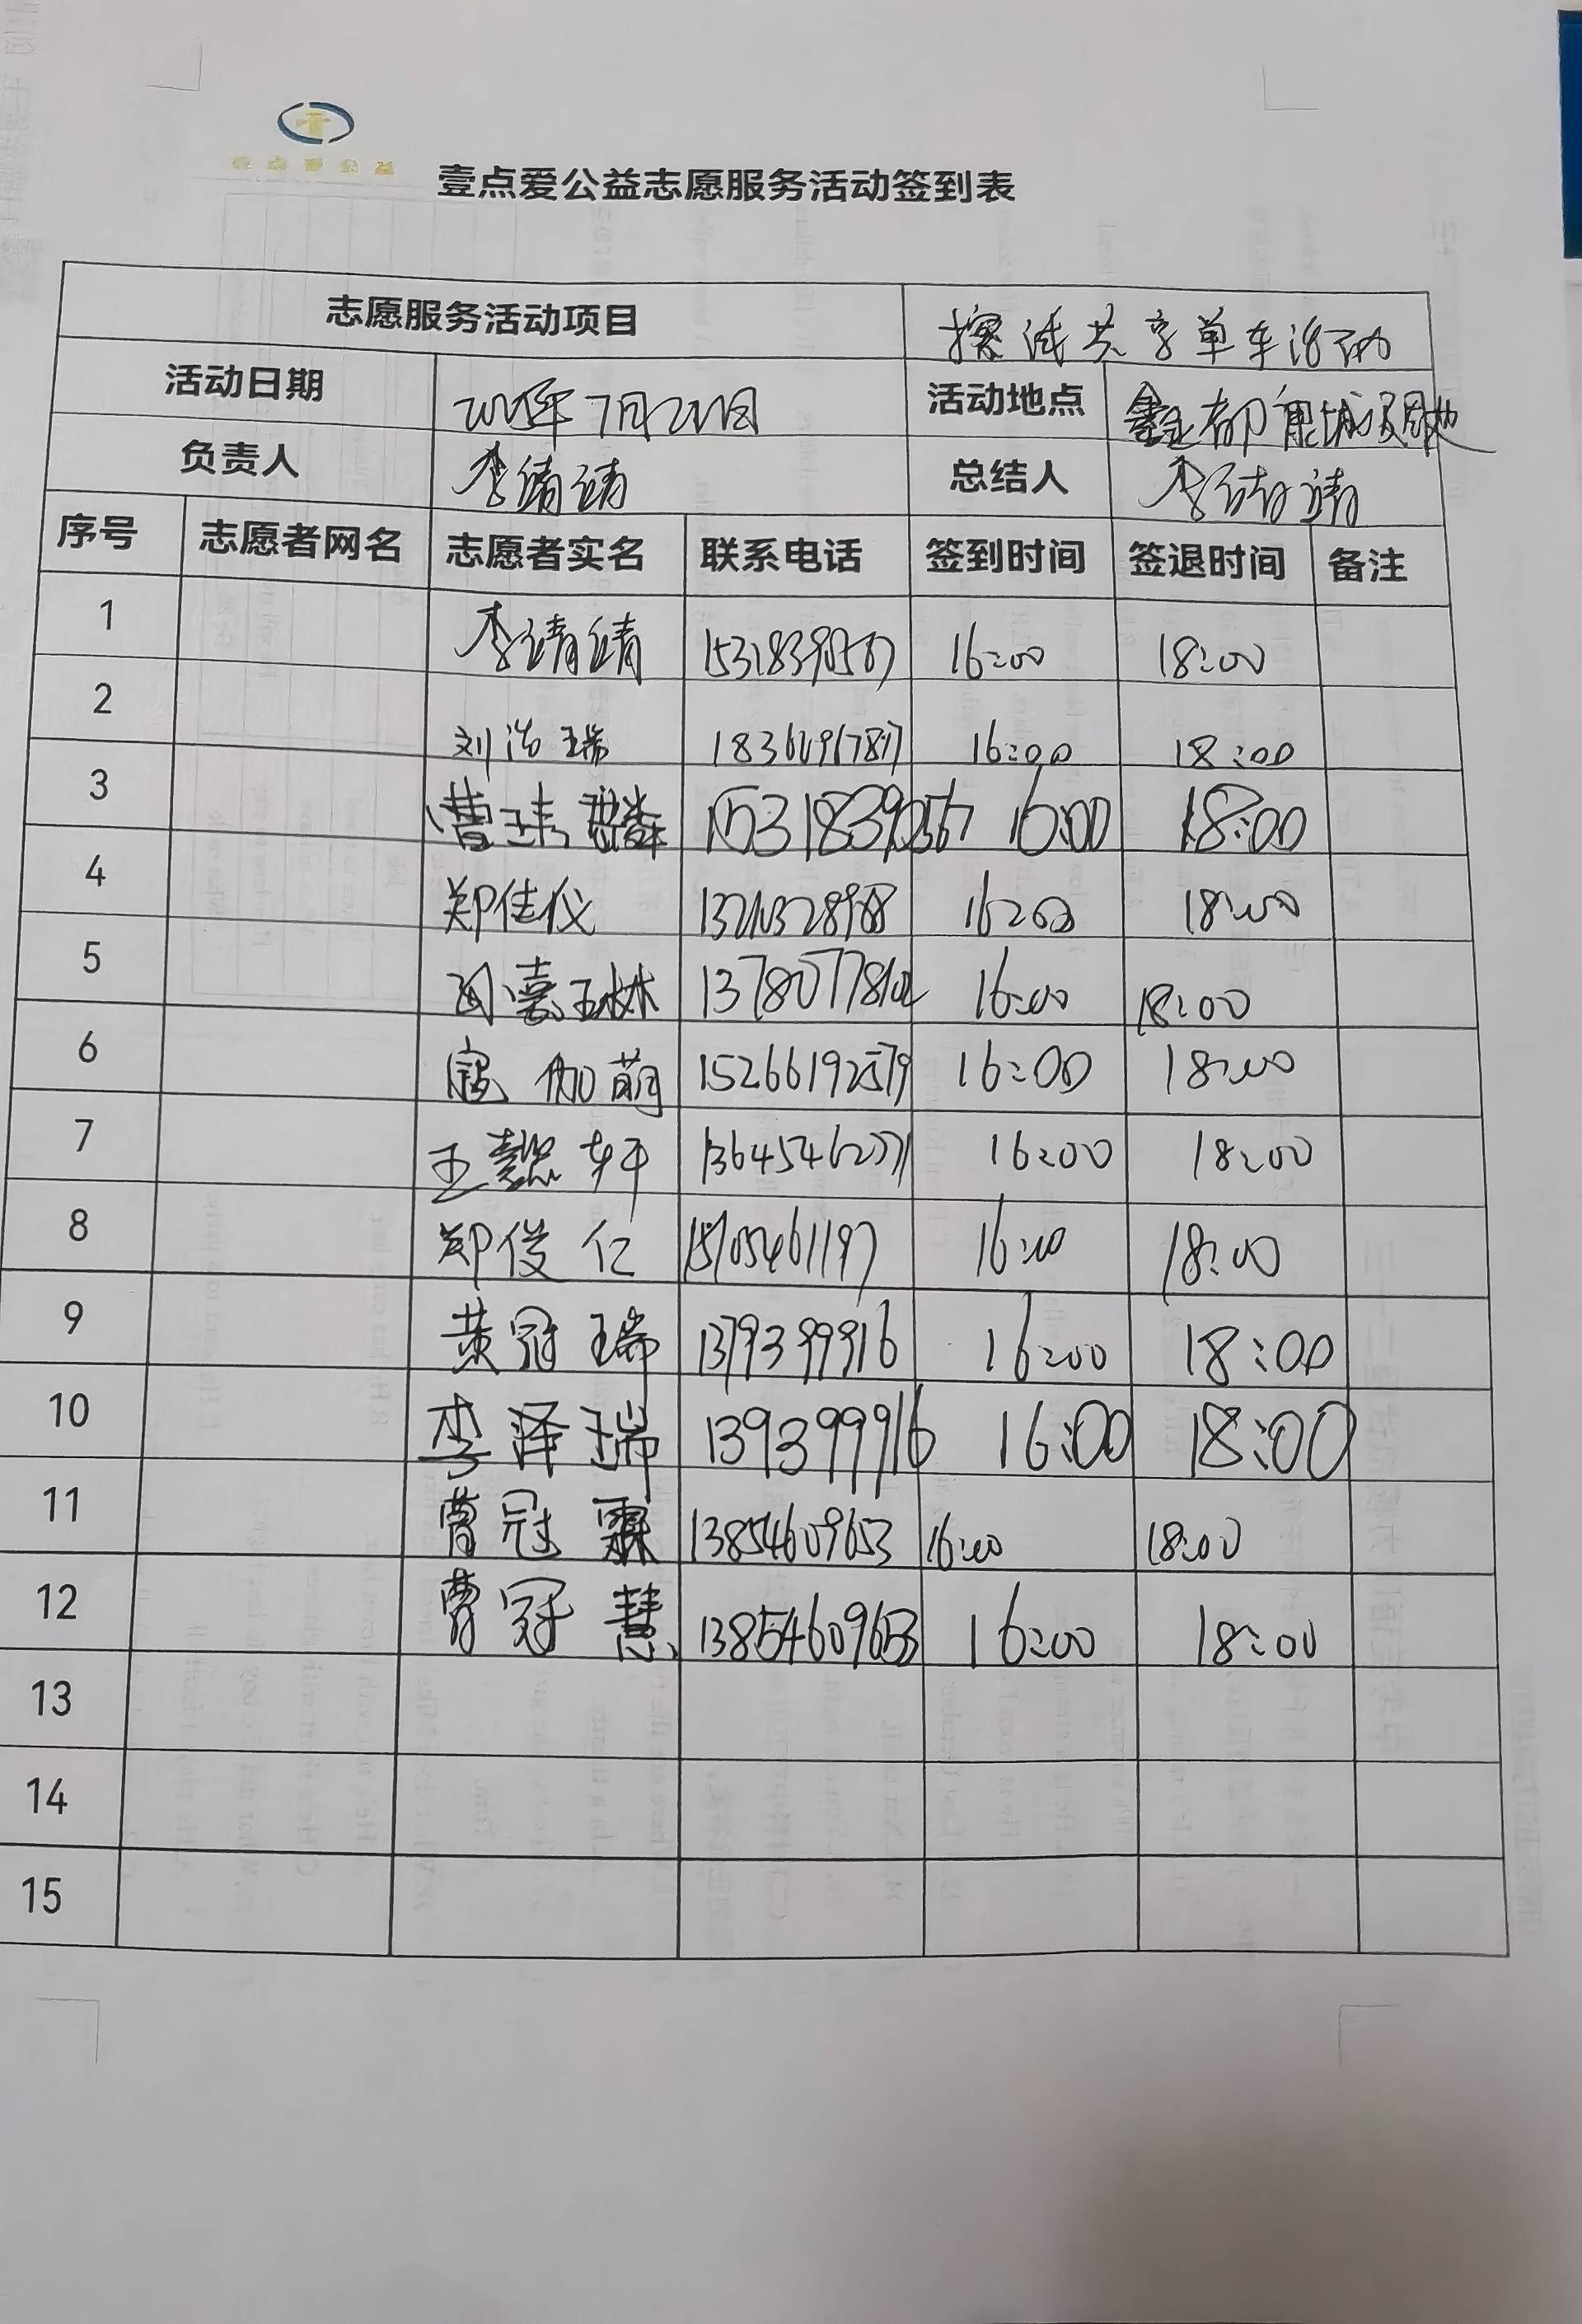 壹点爱公益志愿服务活动签到表
志愿服务活动项目 擦拭共享单车活动
活动日期 7月 活动地点 鑫都
负责人 李靖靖 总结人 李靖靖
序号 志愿者网名 志愿者实名 联系电话 签到时间 签退时间 备注
1 李靖靖 16:00 18:00
2 刘浩瑞 16:00 18:00
3 曹 15318390567 16:00 18:00
4 郑佳仪 16:00 18:00
5 16:00 18:00
6 寇伽萌 15266192579 16:00 18:00
7 王懿轩 16:00 18:00
8 郑俊仁 15105461197 16:00 18:00
9 黄冠瑞 16:00 18:00
10 李泽瑞 139399916 16:00 18:00
11 曹冠霖 13854609653 16:00 18:00
12 曹冠慧 13854609653 16:00 18:00
13
14
15